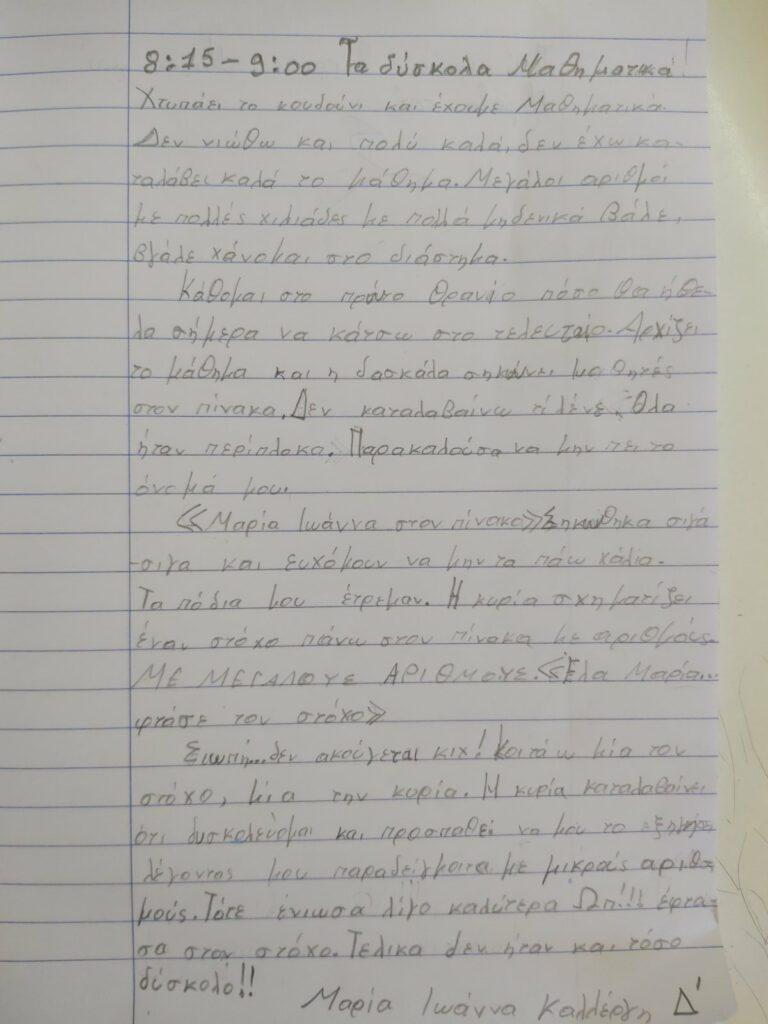 8:15-9:00 Τα δύσκολα Μαθηματικά!
Χτυπάει το κουδούνι και έχουμε Μαθηματικά.
Δεν νιώθω και πολύ καλά, δεν έχω κα-
ταλάβει καλά το μάθημα. Μεγάλοι αριθμοί
με πολλές χιλιάδες με πολλά μηδενικά βάλε,
βγάλε χάνομαι στο διάστημα.
Κάθομαι στο πρώτο θρανίο πόσο θα ήθε-
λα σήμερα να κάτσω στο τελευταίο. Αρχίζει
το μάθημα και η δασκάλα σηκώνει μαθητές
στον πίνακα. Δεν καταλαβαίνω τι λένε. Όλα
ήταν περίπλοκα. Παρακαλούσα να μην πει το
όνομά μου.
«Μαρία Ιωάννα στον πίνακα» Σηκώθηκα σιγά
-σιγα και ευχόμουν να μην τα πάω χάλια.
Τα πόδια μου έτρεμαν. Η κυρία σχηματίζει
έναν στόχο πάνω στον πίνακα με αριθμούς.
ΜΕ ΜΕΓΑΛΟΥΣ ΑΡΙΘΜΟΥΣ. «Έλα Μαρία...
φτάσε τον στόχο»
Σιωπή... δεν ακούγεται κιχ! Κοιτάω μία τον
στόχο, μία την κυρία. Η κυρία καταλαβαίνει
ότι δυσκολεύομαι και προσπαθεί να μου το εξηγήσει
λέγοντας μου παραδείγματα με μικρούς αριθ-
μούς. Τότε ένιωσα λίγο καλύτερα Ωπ!!! έφτα-
σα στον στόχο. Τελικα δεν ήταν και τόσο
δύσκολο!!
Μαρία Ιωάννα Καλλέργη Δ'